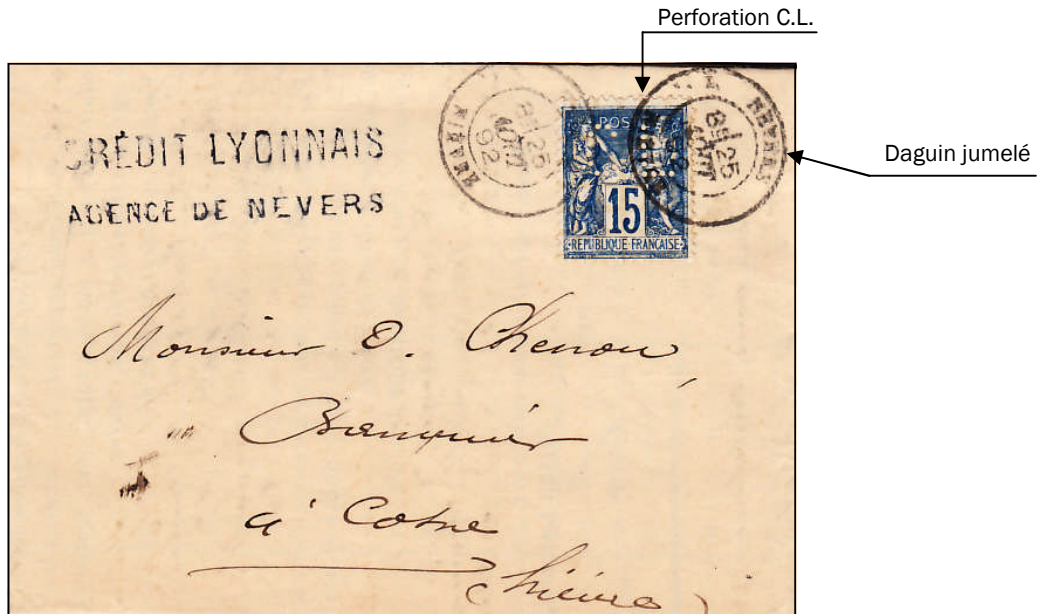 Perforation C.L.
Daguin jumelé
CRÉDIT LYONNAIS
AGENCE DE NEVERS
8E 25 AOUT 92
NEVERS 8E 25 AOUT
POS
15
RÉPUBLIQUE FRANÇAISE
Monsieur O. Chenou,
Banquier
à Cosne
(Nièvre)